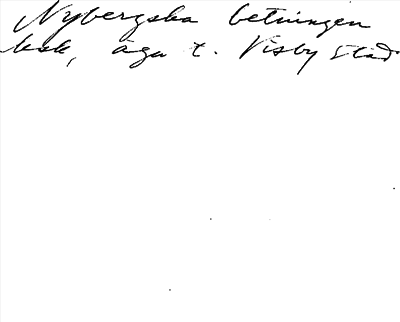 Nybergska betningen
ksk, äga t. Visby stad